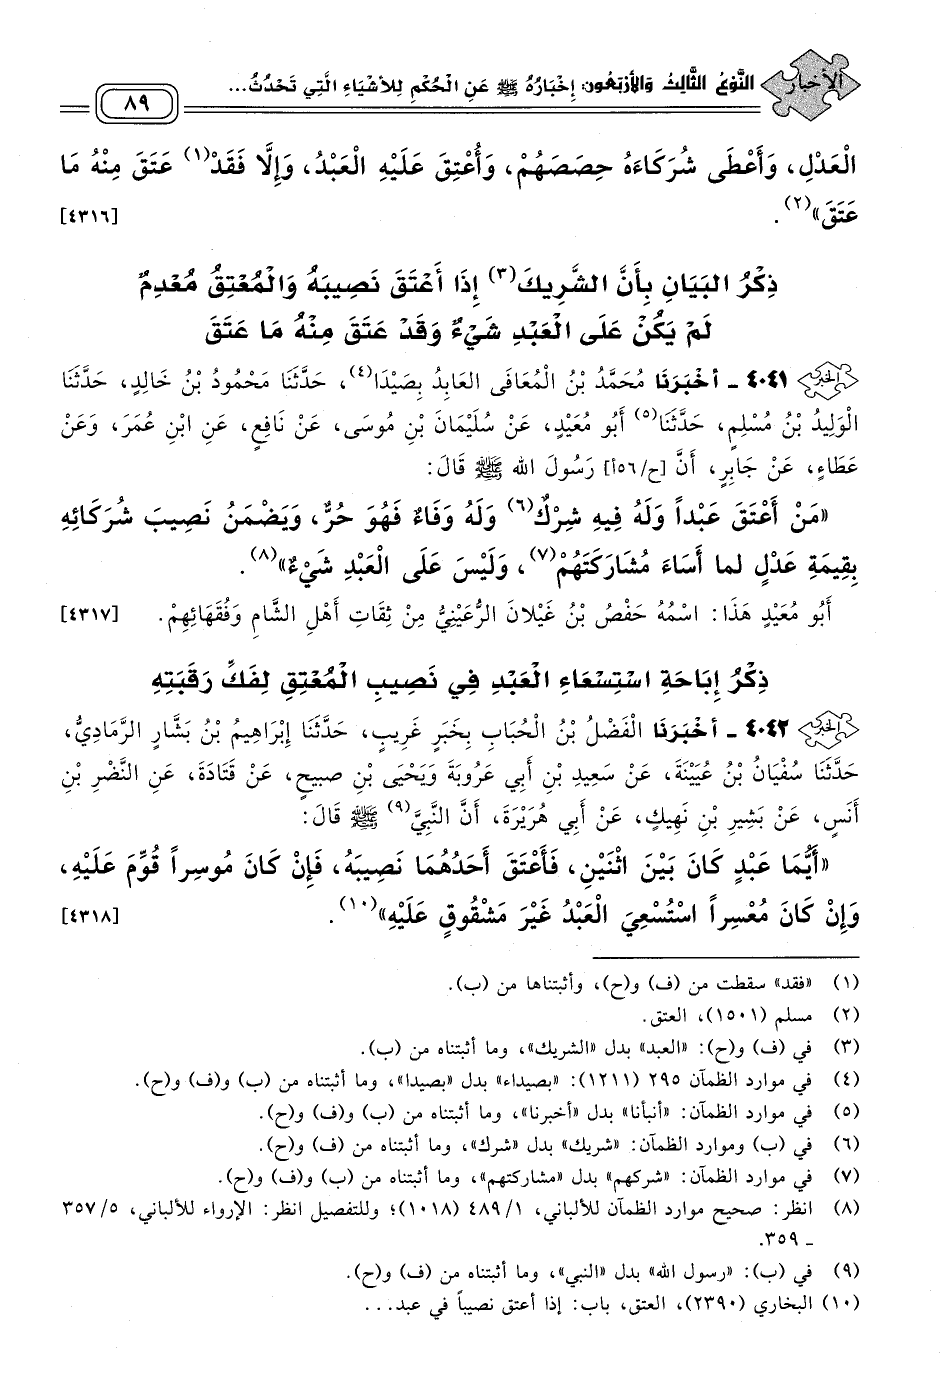 الأخبار
النَّوْعُ الثَّالِثُ وَالأَرْبَعُون: إِخْبَارُهُ ﷺ عَنِ الْحُكْمِ لِلأَشْيَاءِ الَّتِي تَحْدُثُ...
٨٩
الْعَدْلِ، وَأَعْطَى شُرَكَاءَهُ حِصَصَهُمْ، وَأُعْتِقَ عَلَيْهِ الْعَبْدُ، وَإِلَّا فَقَدْ(١) عَتَقَ مِنْهُ مَا
عَتَقَ»(٢). [٤٣١٦]
ذِكْرُ البَيَانِ بِأَنَّ الشَّرِيكَ(٣) إِذَا أَعْتَقَ نَصِيبَهُ وَالْمُعْتِقُ مُعْدِمٌ
لَمْ يَكُنْ عَلَى الْعَبْدِ شَيْءٌ وَقَدْ عَتَقَ مِنْهُ مَا عَتَقَ
٤٠٤١ - أَخْبَرَنَا مُحَمَّدُ بْنُ الْمُعَافَى العَابِدُ بِصَيْدَا(٤)، حَدَّثَنَا مَحْمُودُ بْنُ خَالِدٍ، حَدَّثَنَا
الْوَلِيدُ بْنُ مُسْلِمٍ، حَدَّثَنَا(٥) أَبُو مُعَيْدٍ، عَنْ سُلَيْمَانَ بْنِ مُوسَى، عَنْ نَافِعٍ، عَنِ ابْنِ عُمَرَ، وَعَنْ
عَطَاءٍ، عَنْ جَابِرٍ، أَنَّ [ح/٥٦أ] رَسُولَ الله ﷺ قَالَ:
«مَنْ أَعْتَقَ عَبْداً وَلَهُ فِيهِ شِرْكٌ(٦) وَلَهُ وَفَاءٌ فَهُوَ حُرٌّ، وَيَضْمَنُ نَصِيبَ شُرَكَائِهِ
بِقِيمَةِ عَدْلٍ لما أَسَاءَ مُشَارَكَتَهُمْ(٧)، وَلَيْسَ عَلَى الْعَبْدِ شَيْءٌ»(٨).
أَبُو مُعَيْدٍ هَذَا: اسْمُهُ حَفْصُ بْنُ غَيْلَانَ الرُّعَيْنِيُّ مِنْ ثِقَاتِ أَهْلِ الشَّامِ وَفُقَهَائِهِمْ. [٤٣١٧]
ذِكْرُ إِبَاحَةِ اسْتِسْعَاءِ الْعَبْدِ فِي نَصِيبِ الْمُعْتِقِ لِفَكِّ رَقَبَتِهِ
٤٠٤٢ - أَخْبَرَنَا الْفَضْلُ بْنُ الْحُبَابِ بِخَبَرٍ غَرِيبٍ، حَدَّثَنَا إِبْرَاهِيمُ بْنُ بَشَّارٍ الرَّمَادِيُّ،
حَدَّثَنَا سُفْيَانُ بْنُ عُيَيْنَةَ، عَنْ سَعِيدِ بْنِ أَبِي عَرُوبَةَ وَيَحْيَى بْنِ صبيح، عَنْ قَتَادَةَ، عَنِ النَّضْرِ بْنِ
أَنَسٍ، عَنْ بَشِيرِ بْنِ نَهِيكٍ، عَنْ أَبِي هُرَيْرَةَ، أَنَّ النَّبِيَّ(٩) ﷺ قَالَ:
«أَيُّمَا عَبْدٍ كَانَ بَيْنَ اثْنَيْنِ، فَأَعْتَقَ أَحَدُهُمَا نَصِيبَهُ، فَإِنْ كَانَ مُوسِراً قُوِّمَ عَلَيْهِ،
وَإِنْ كَانَ مُعْسِراً اسْتُسْعِيَ الْعَبْدُ غَيْرَ مَشْقُوقٍ عَلَيْهِ»(١٠). [٤٣١٨]
(١) «فقد» سقطت من (ف) و(ح)، وأثبتناها من (ب).
(٢) مسلم (١٥٠١)، العتق.
(٣) في (ف) و(ح): «العبد» بدل «الشريك»، وما أثبتناه من (ب).
(٤) في موارد الظمآن ٢٩٥ (١٢١١): «بصيداء» بدل «بصيدا»، وما أثبتناه من (ب) و(ف) و(ح).
(٥) في موارد الظمآن: «أنبأنا» بدل «أخبرنا»، وما أثبتناه من (ب) و(ف) و(ح).
(٦) في (ب) وموارد الظمآن: «شريك» بدل «شرك»، وما أثبتناه من (ف) و(ح).
(٧) في موارد الظمآن: «شركهم» بدل «مشاركتهم»، وما أثبتناه من (ب) و(ف) و(ح).
(٨) انظر: صحيح موارد الظمآن للألباني، ١/ ٤٨٩ (١٠١٨)؛ وللتفصيل انظر: الإرواء للألباني، ٥/ ٣٥٧
- ٣٥٩.
(٩) في (ب): «رسول الله» بدل «النبي»، وما أثبتناه من (ف) و(ح).
(١٠) البخاري (٢٣٩٠)، العتق، باب: إذا أعتق نصيباً في عبد...